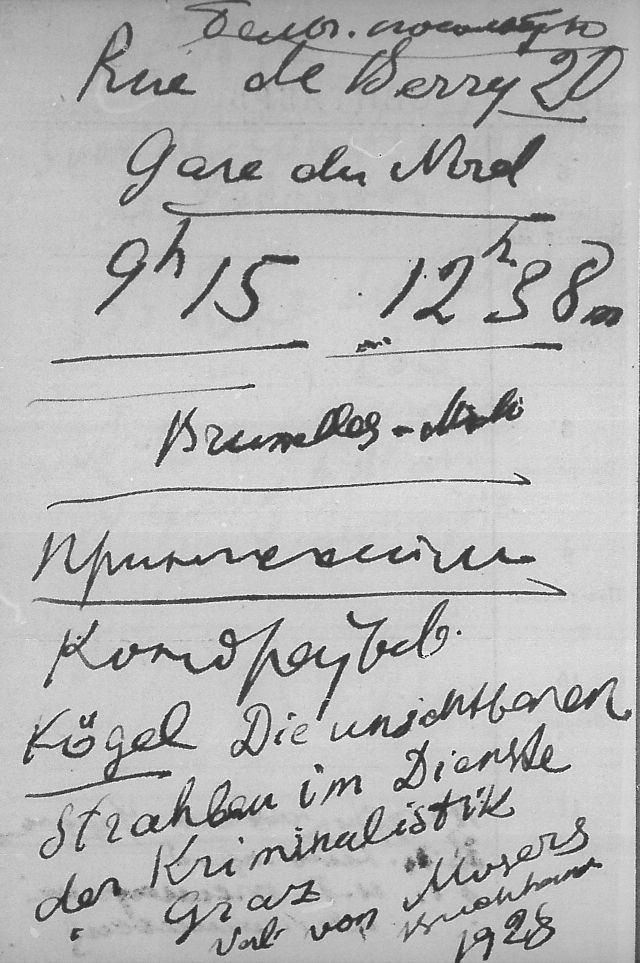 Бельг. посольство
Rue de Berry 20
Gare du Nord
9h 15 12h 38m
Bruxelles - Midi
Кондратьев.
Kögel Die unsichtbaren
Strahlen im Dienste
der Kriminalistik
Graz
Verl von Mosers
Buchhand
1928